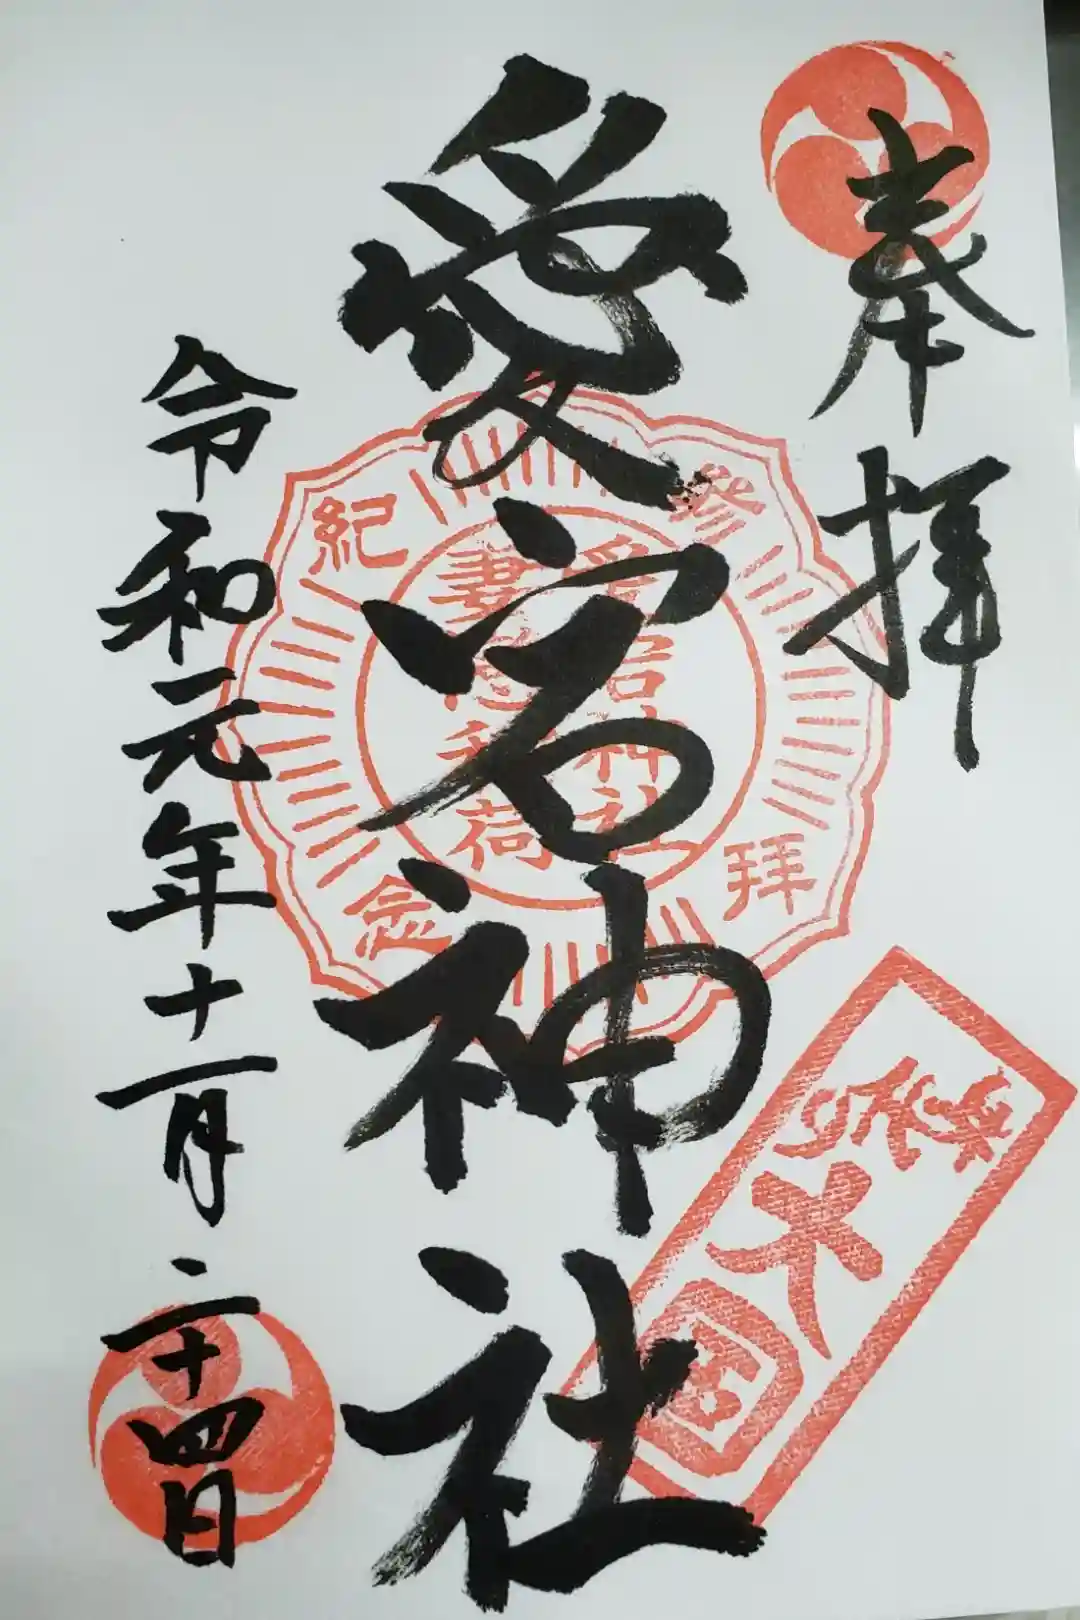 奉拝
愛宕神社
令和元年十一月二十四日
參拝
紀念
愛宕神社
妻恋稲荷